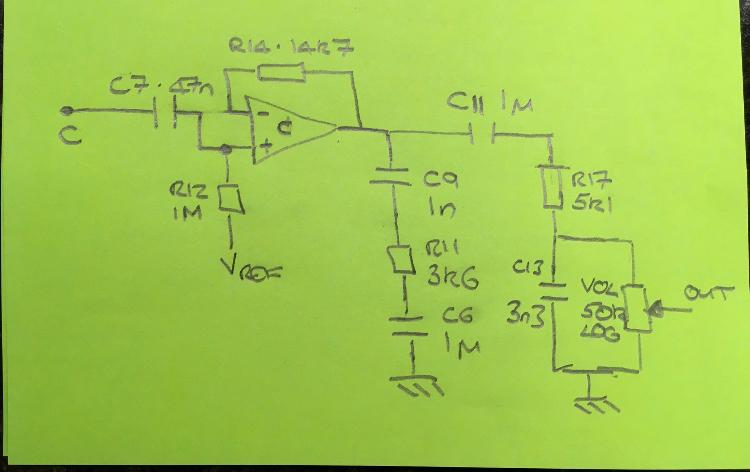 R14 . 14k7
C7 . 47n
C
-
+
d
R12
1M
VREF
C9
1n
R11
3k6
C6
1M
C11 1M
R17
5k1
C13
3n3
VOL
50k
LOG
OUT